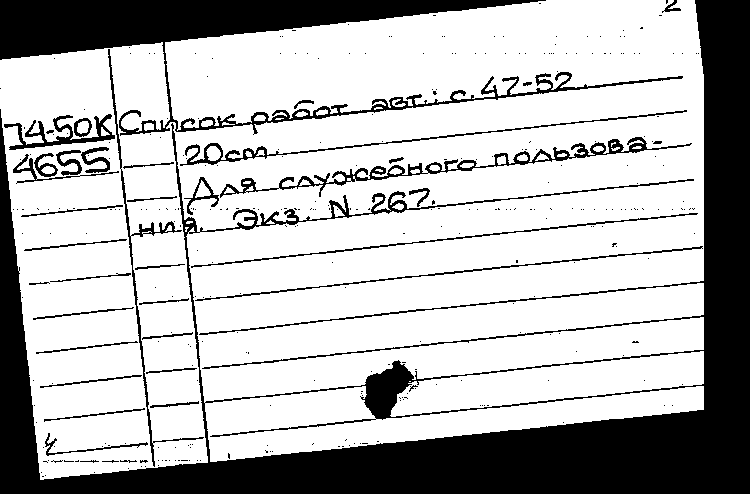 2
74-50К Список работ авт.: с. 47-52.
4655 20cm.
Для служебного пользова-
ния. Экз. N 267.